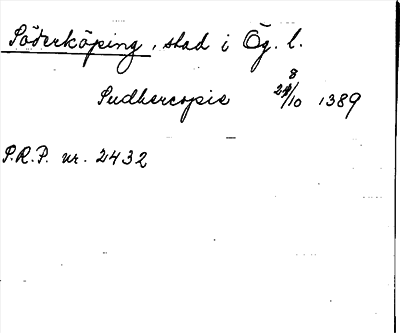 Söderköping, stad i Ög. l.
Sudhercopie 28/10 1389
S.R.P. nr. 2432